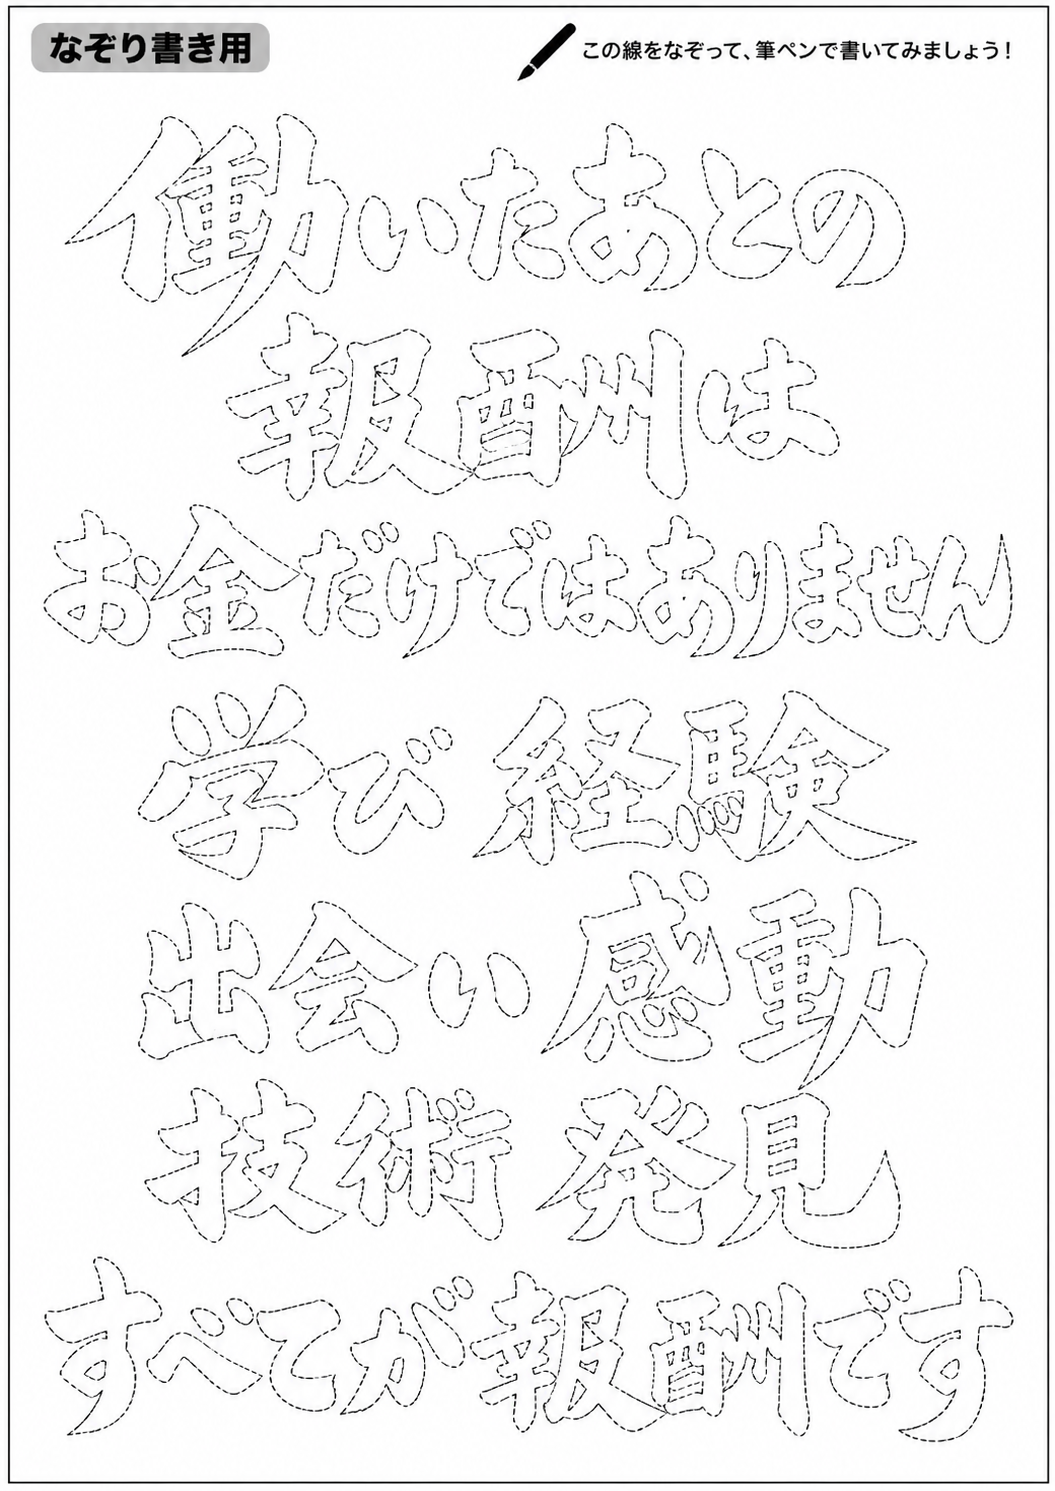 なぞり書き用
この線をなぞって、筆ペンで書いてみましょう！
働いたあとの
報酬は
お金だけではありません
学び 経験
出会い 感動
技術 発見
すべてが報酬です